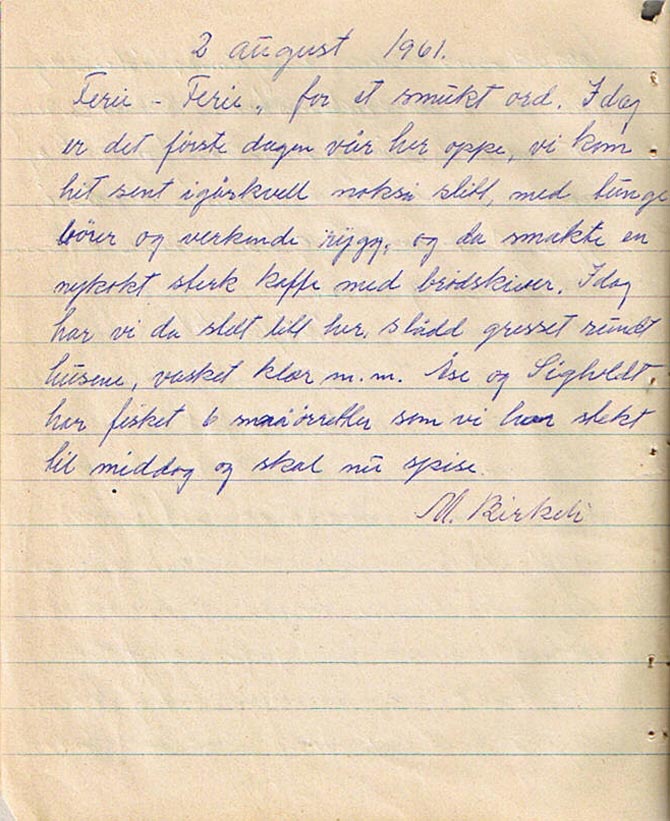 2 august 1961.
Ferie - Ferie, for et smukt ord. Idag
er det første dagen vår her oppe, vi kom
hit sent igårkvell nokså slitt, med tunge
bører og verkende rygg, og da smakte en
nykokt sterk kaffe med brødskiver. Idag
har vi da stelt litt her, slådd gresset rundt
husene, vasket klær m.m. Åse og Sigholdt
har fisket 6 småørretter som vi har stekt
til middag og skal nu spise.
M. Birkeli